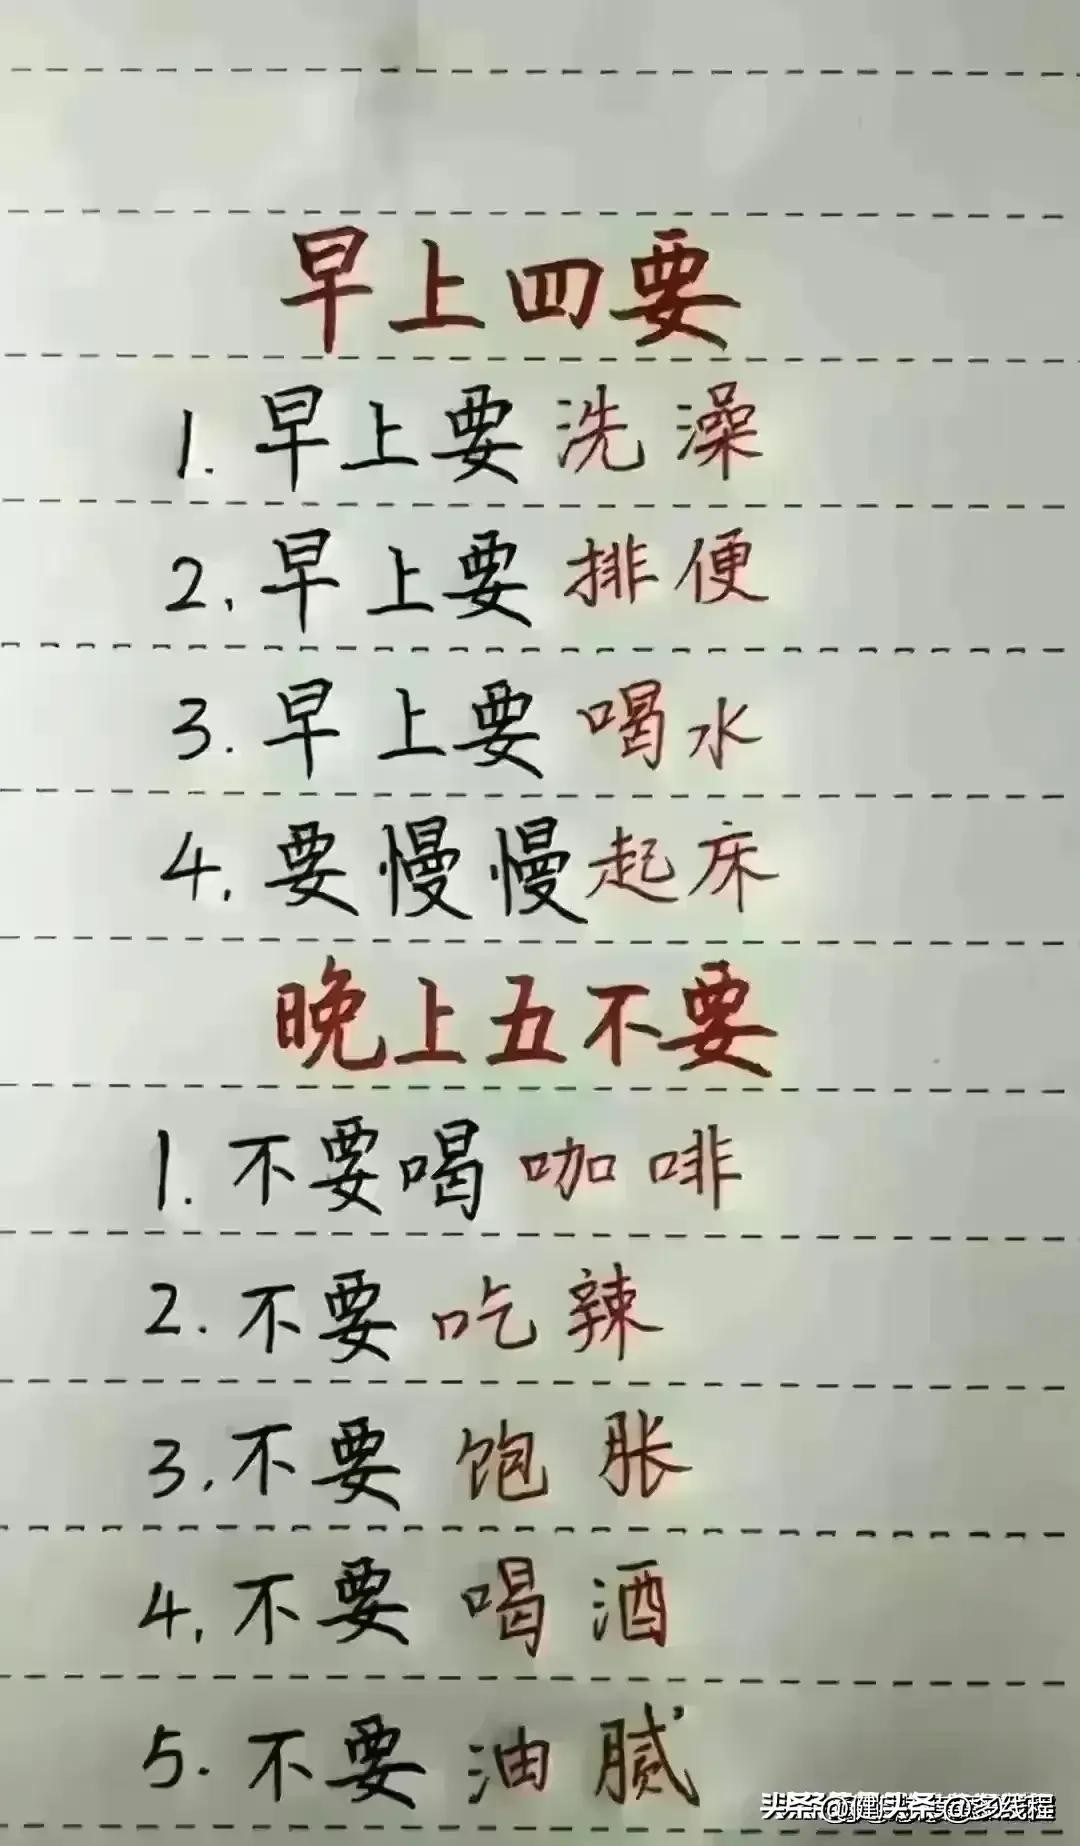 早上四要
1. 早上要洗澡
2. 早上要排便
3. 早上要喝水
4. 要慢慢起床
晚上五不要
1. 不要喝咖啡
2. 不要吃辣
3. 不要饱胀
4. 不要喝酒
5. 不要油腻